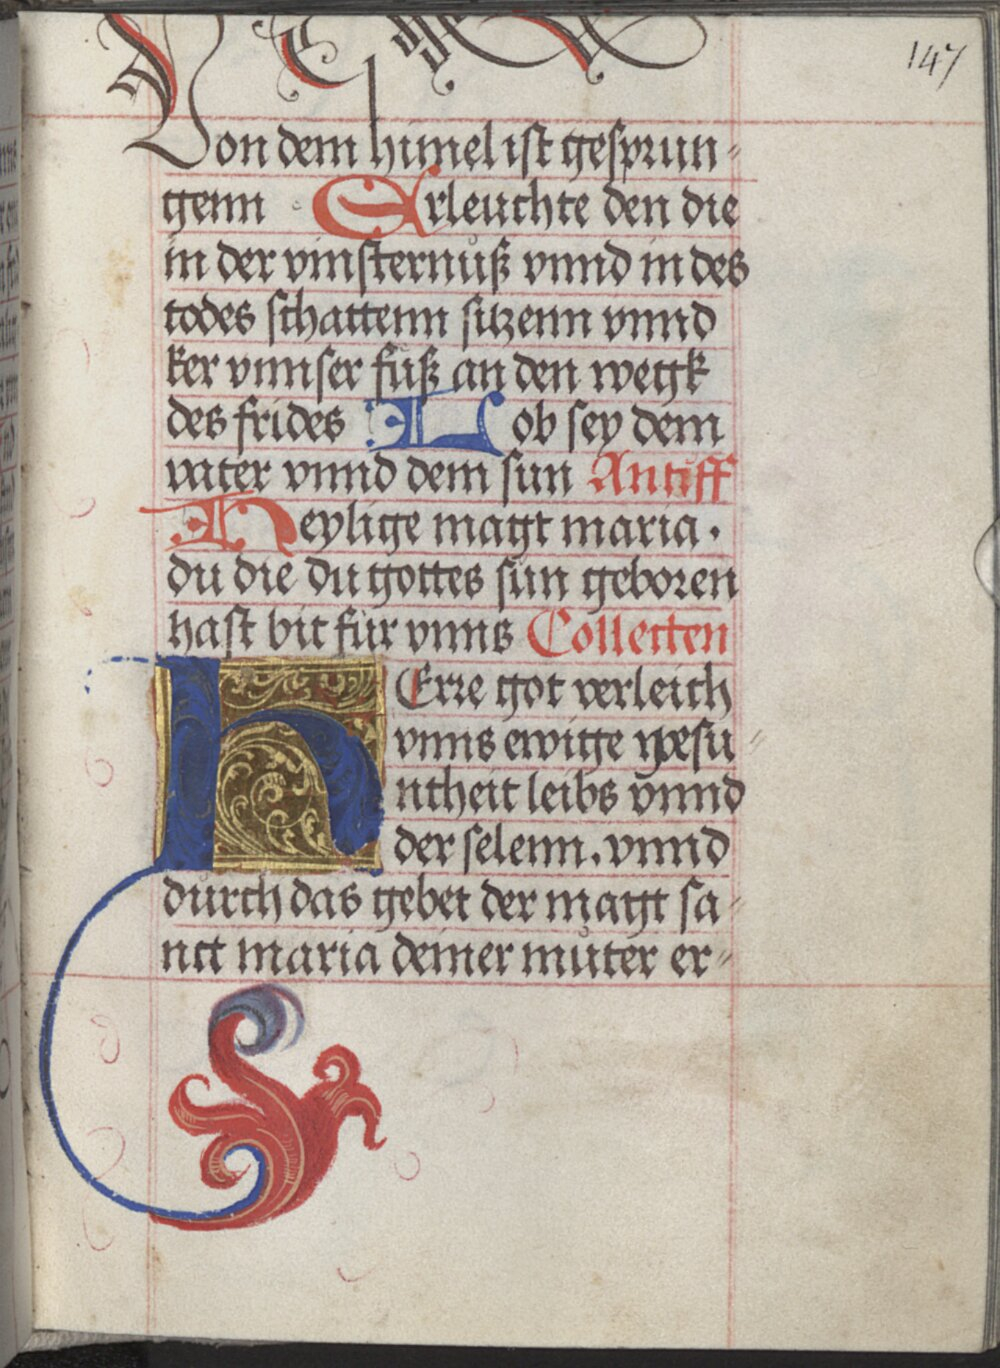 147
Von dem himel ist gesprun-
genn Erleuchte den die
in der vinsternuß vnnd in des
todes schattenn sitzenn vnnd
ker vnnser füß an den wegk
des frides Lob sey dem
vater vnnd dem sun Antiff
Heylige magt maria.
du die du gottes sun geboren
hast bit für vnns Collecten
HErre got verleich
vnns ewige gesu
ntheit leibs vnnd
der selenn. vnnd
durch das gebet der magt sa-
nct maria deiner muter er-